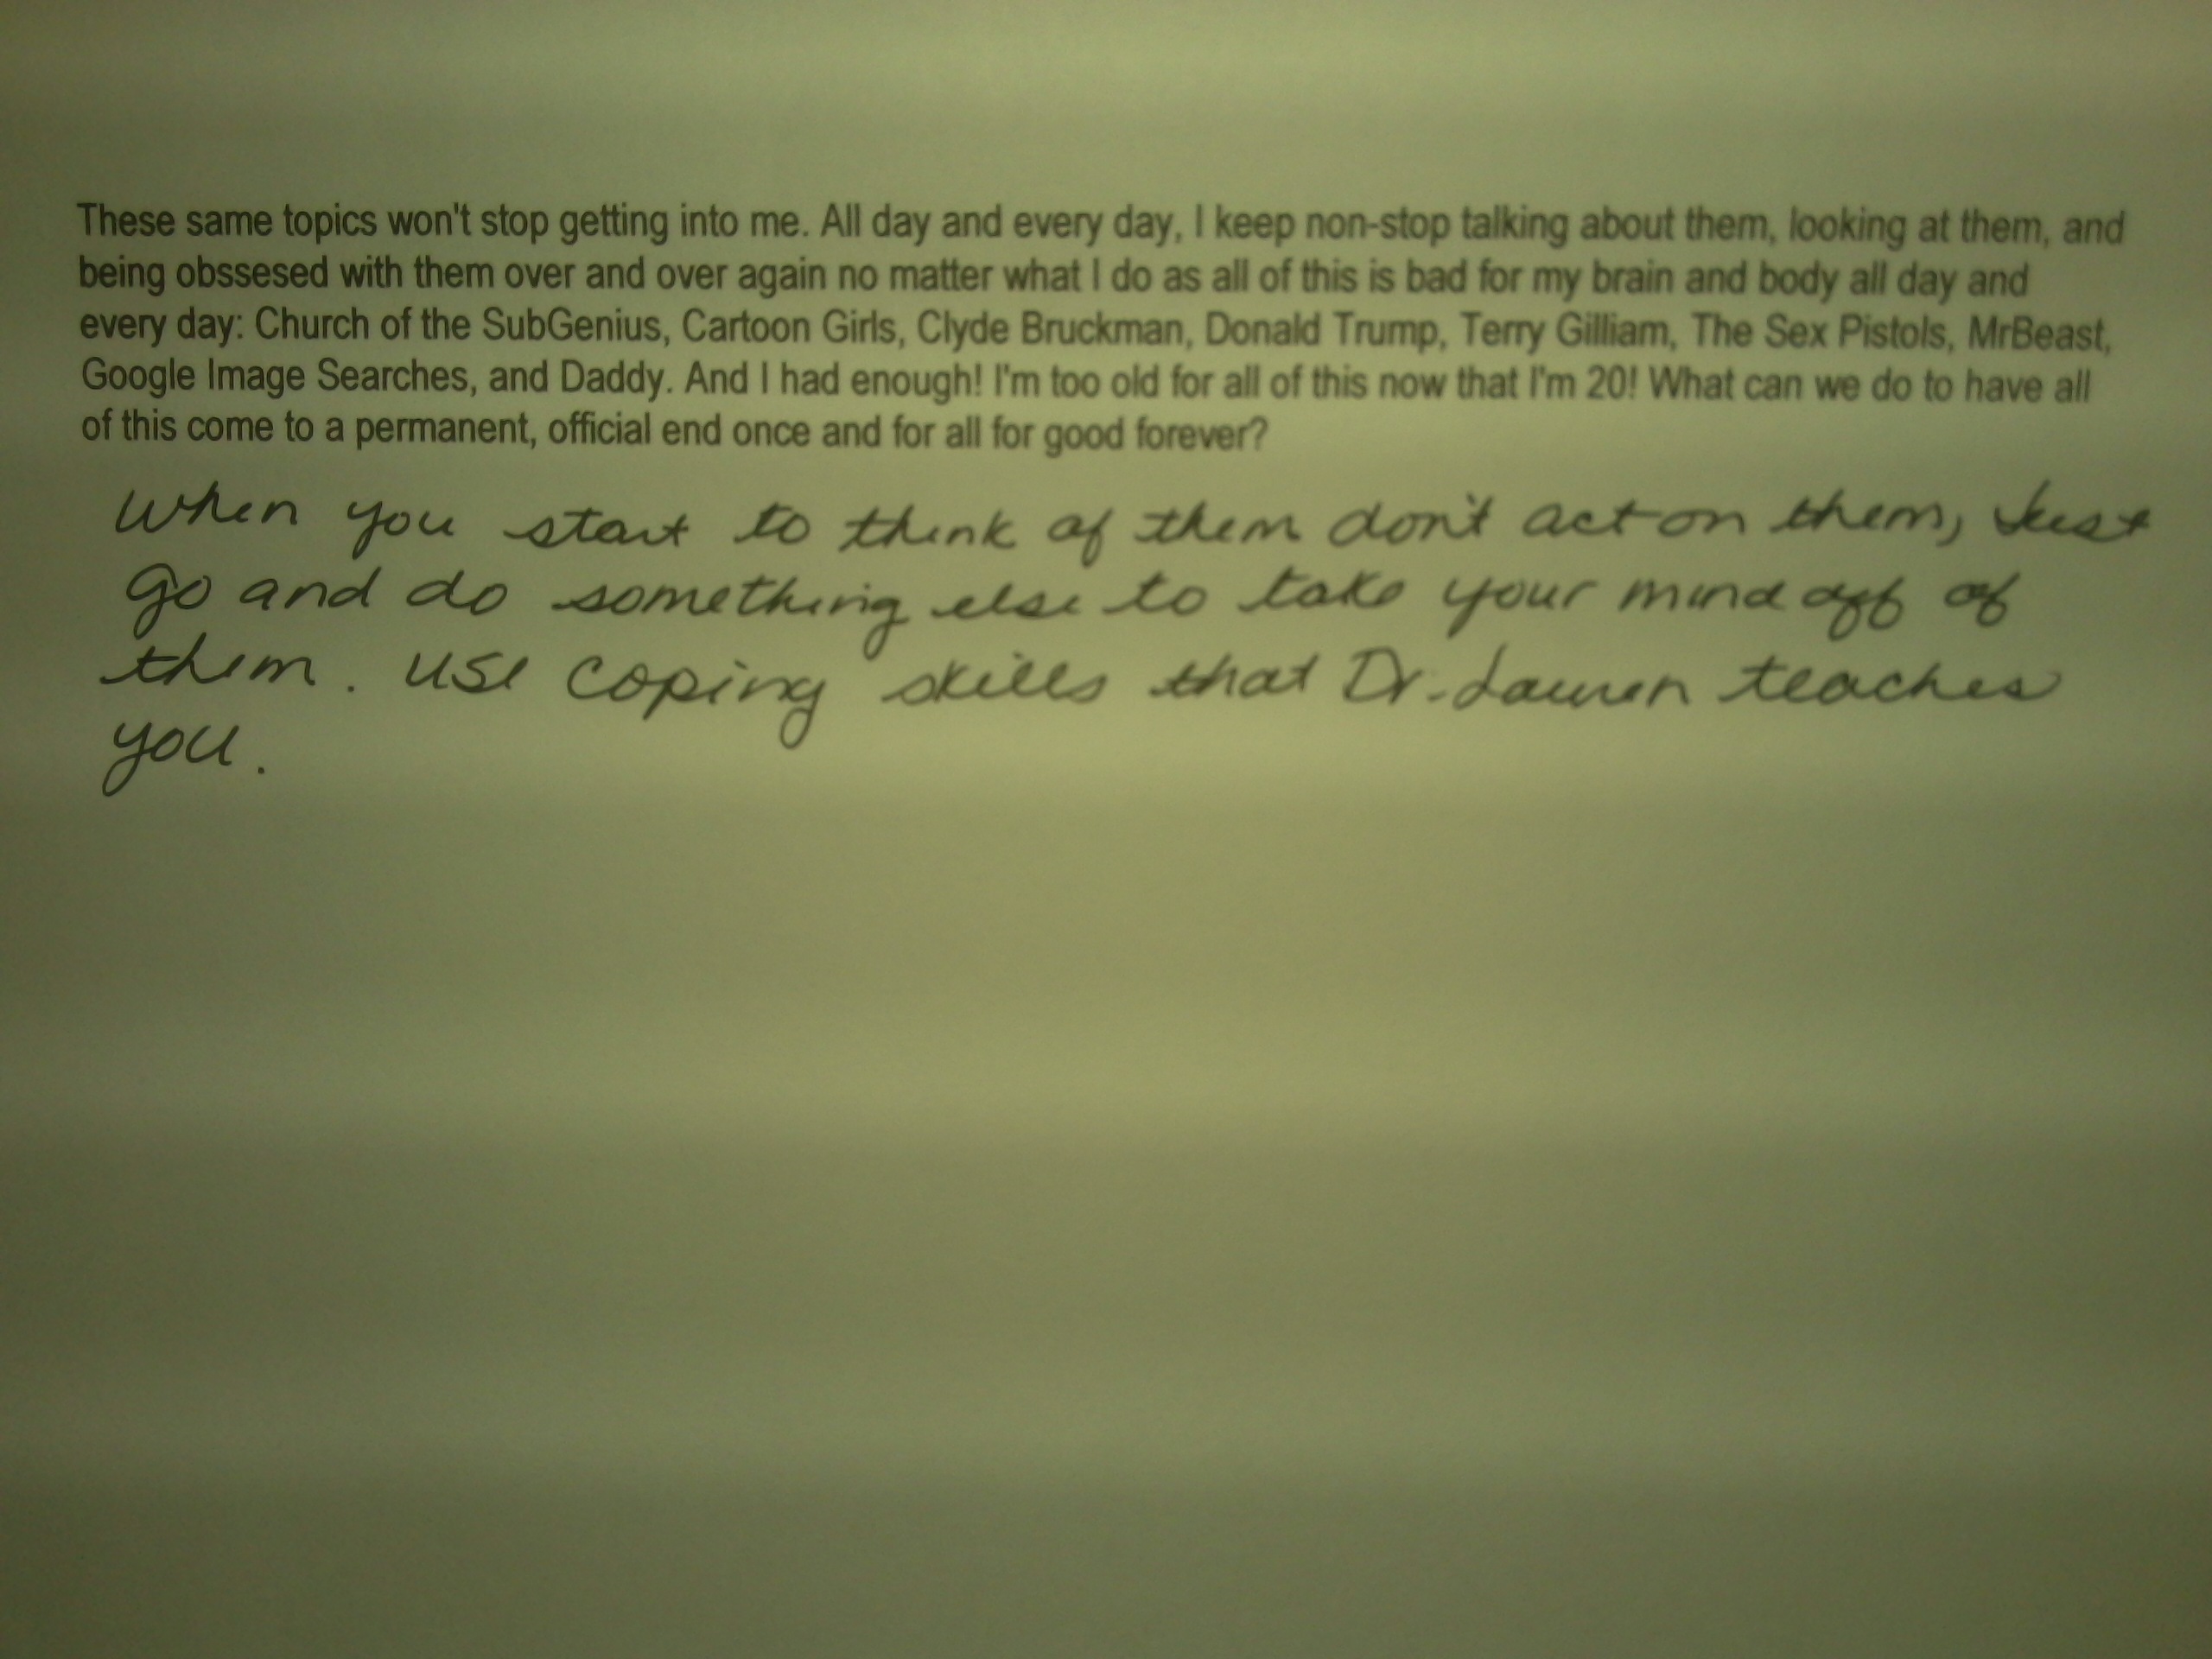 These same topics won't stop getting into me. All day and every day, I keep non-stop talking about them, looking at them, and
being obssesed with them over and over again no matter what I do as all of this is bad for my brain and body all day and
every day: Church of the SubGenius, Cartoon Girls, Clyde Bruckman, Donald Trump, Terry Gilliam, The Sex Pistols, MrBeast,
Google Image Searches, and Daddy. And I had enough! I'm too old for all of this now that I'm 20! What can we do to have all
of this come to a permanent, official end once and for all for good forever?
When you start to think of them don't act on them, Just
go and do something else to take your mind off of
them. Use coping skills that Dr. Lauren teaches
you.